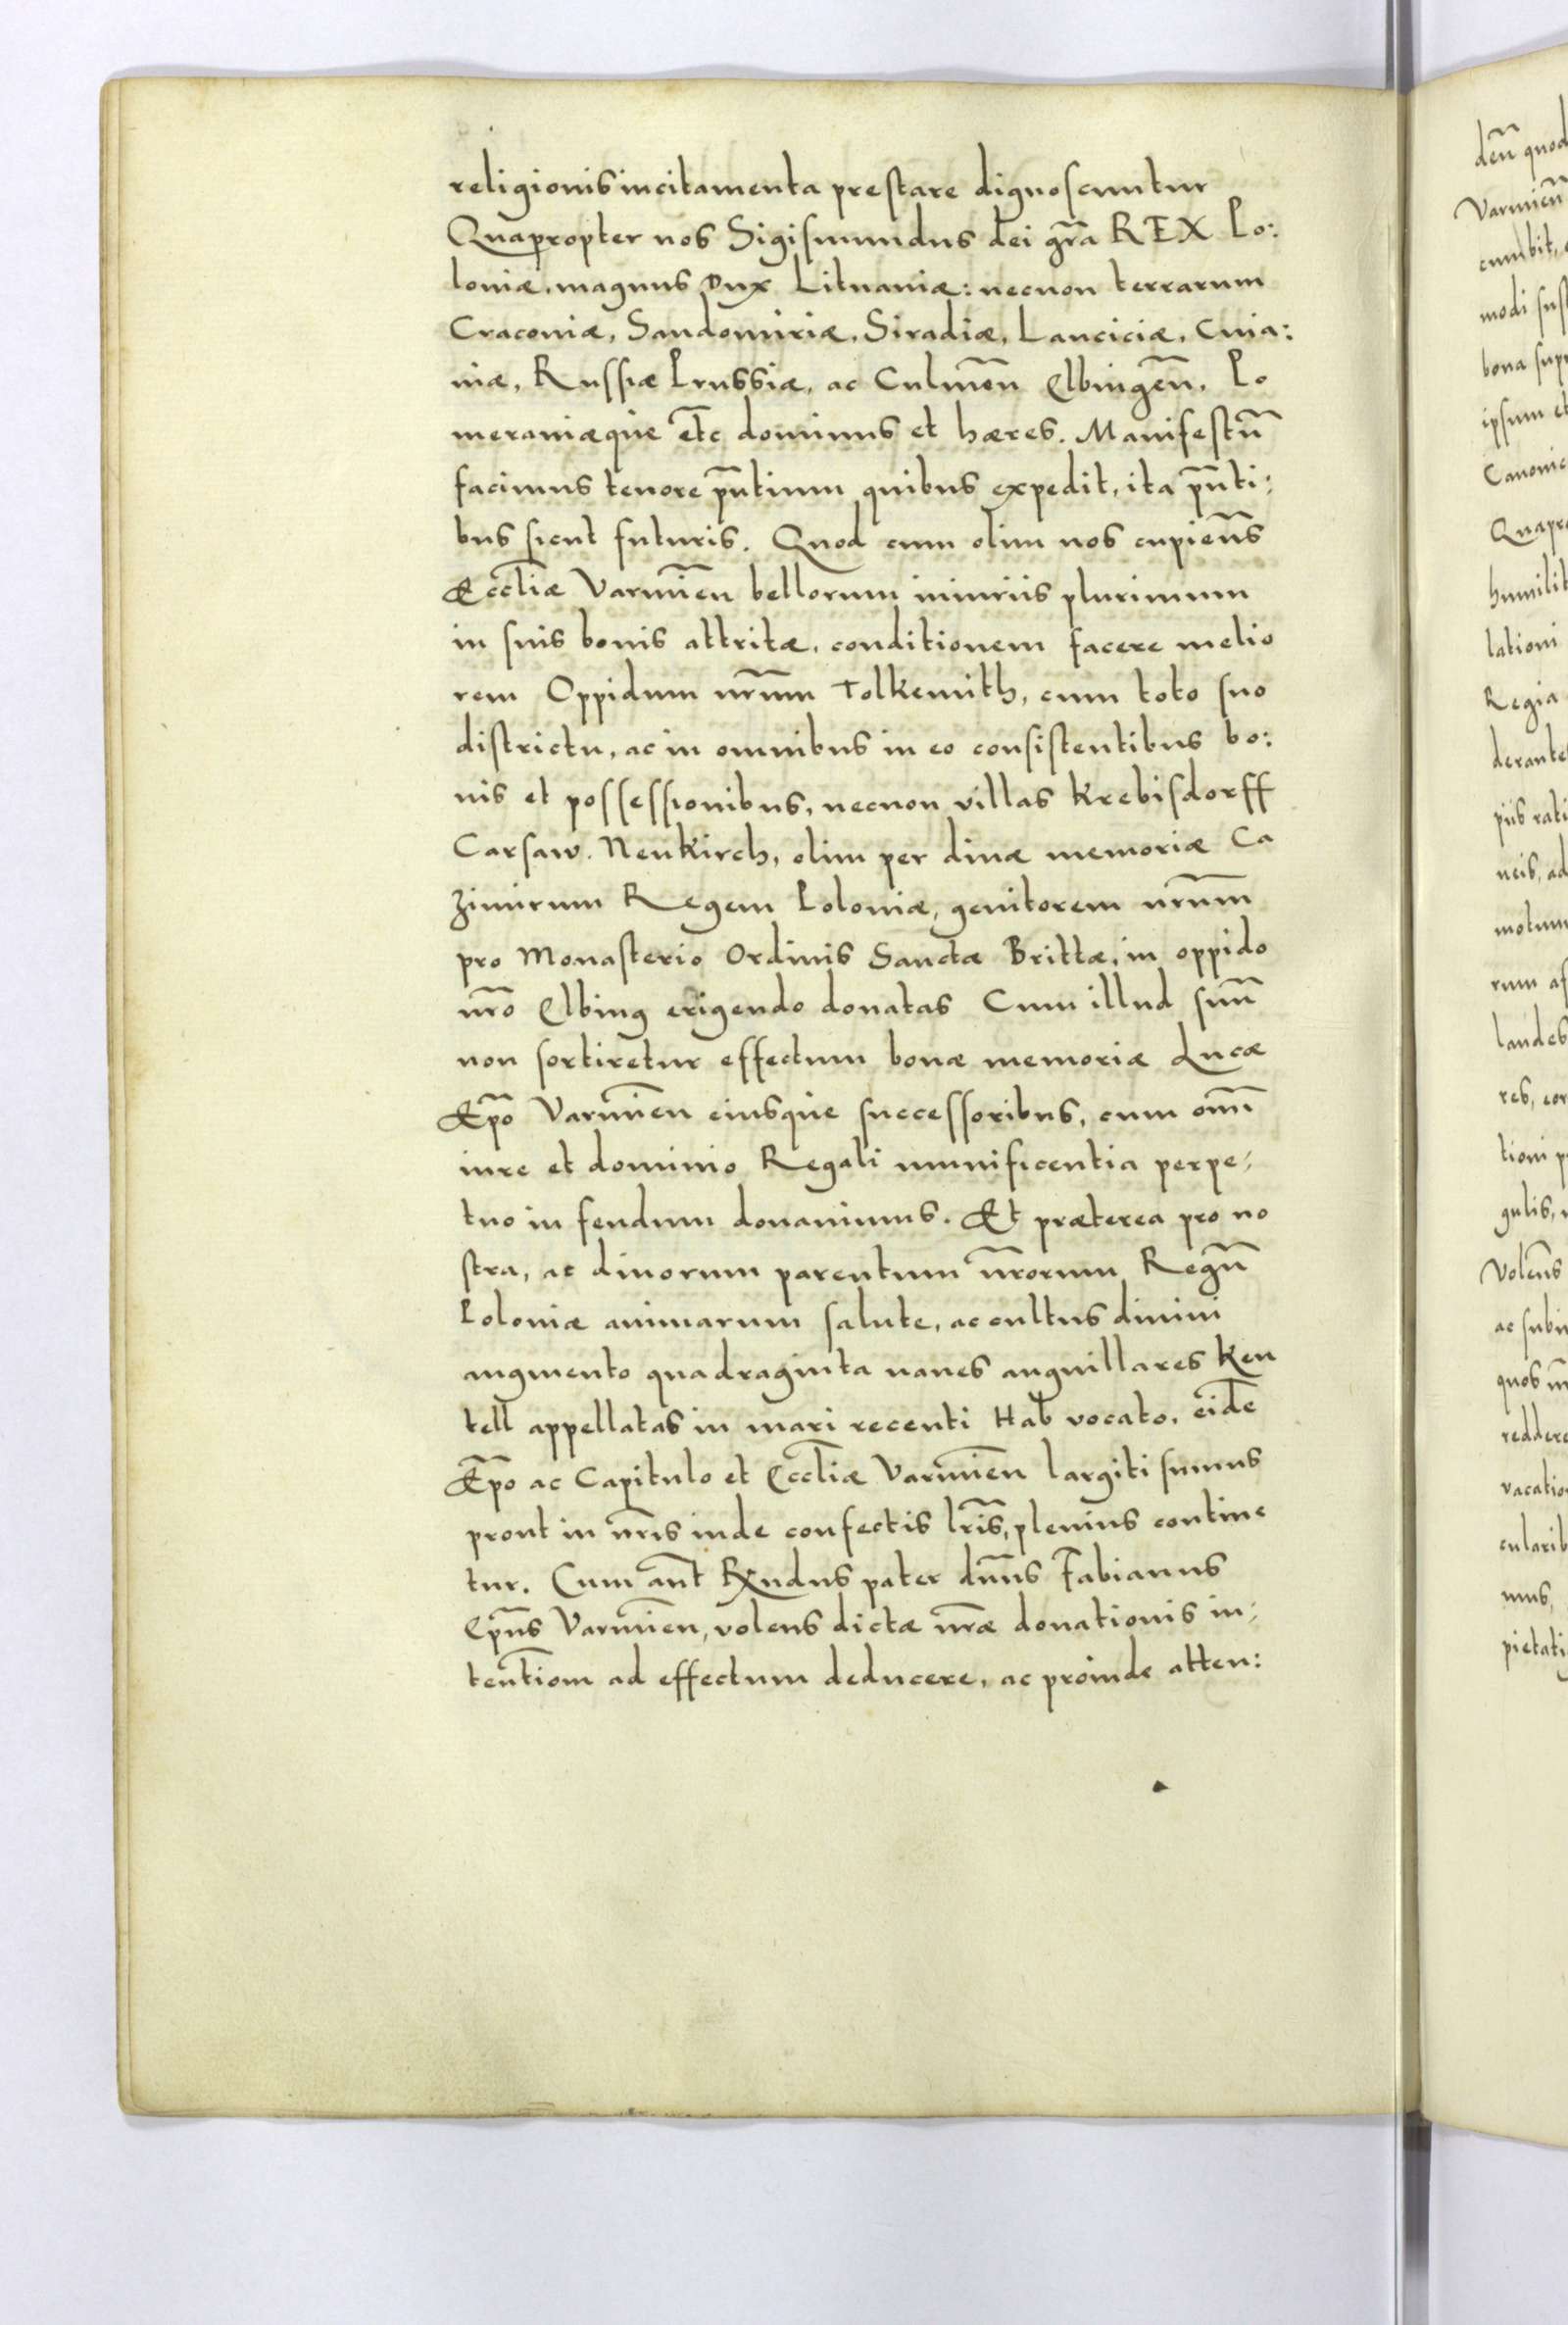 religionis incitamenta prestare dignoscuntur
Quapropter nos Sigismundus dei gr̃a REX Po:
loniæ, magnus Dux Lituaniæ: necnon terrarum
Craconiæ, Sandomiriæ, Siradiæ, Lanciciæ, Cuia:
uiæ, Russiæ Prussiæ, ac Culmen̄ Elbingen̄, Po
meraniæque etc̄ dominus et hæres. Manifestū
facimus tenore pn̄tium quibus expedit, ita pn̄ti:
bus sicut futuris. Quod cum olim nos cupien̄s
Eccl̄iæ Varmien̄ bellorum iniuriis plurimum
in suis bonis attritæ, conditionem facere melio
rem Oppidum nr̄um Tolkemith, cum toto suo
districtu, ac in omnibus in eo consistentibus bo:
nis et possessionibus, necnon villas Krebisdorff
Carsaw. Neukirch, olim per diuæ memoriæ Ca
zimirum Regem Poloniæ, genitorem nr̄um
pro Monasterio Ordinis Sanctæ Brittæ, in oppido
nr̄o Elbing erigendo donatas Cum illud suū
non sortiretur effectum bonæ memoriæ Lucæ
Ep̄o Varmien̄ eiusque successoribus, cum om̄i
iure et dominio Regali munificentia perpe:
tuo in feudum donauimus. Et præterea pro no
stra, ac diuorum parentum nr̄orum Regū
Poloniæ animarum salute, ac cultus diuini
augmento quadraginta naues anguillares Keu
tell appellatas in mari recenti Hab vocato, eidē
Ep̄o ac Capitulo et Eccl̄iæ Varmien̄ largiti sumus
prout in nr̄is inde confectis lr̄is, plenius contine
tur. Cum aut̄ Rx̄ndus pater dn̄us Fabianus
Ep̄us Varmien̄, volens dictæ nr̄æ donationis in:
tentīom ad effectum deducere, ac proinde atten:
den̄ quod
Varmien̄
cumbit,
modi
bona
ipsum et
lationi
Regia
motum
rum
laudes
res,
gulis,
Volen̄s
quos
reddere
mus,